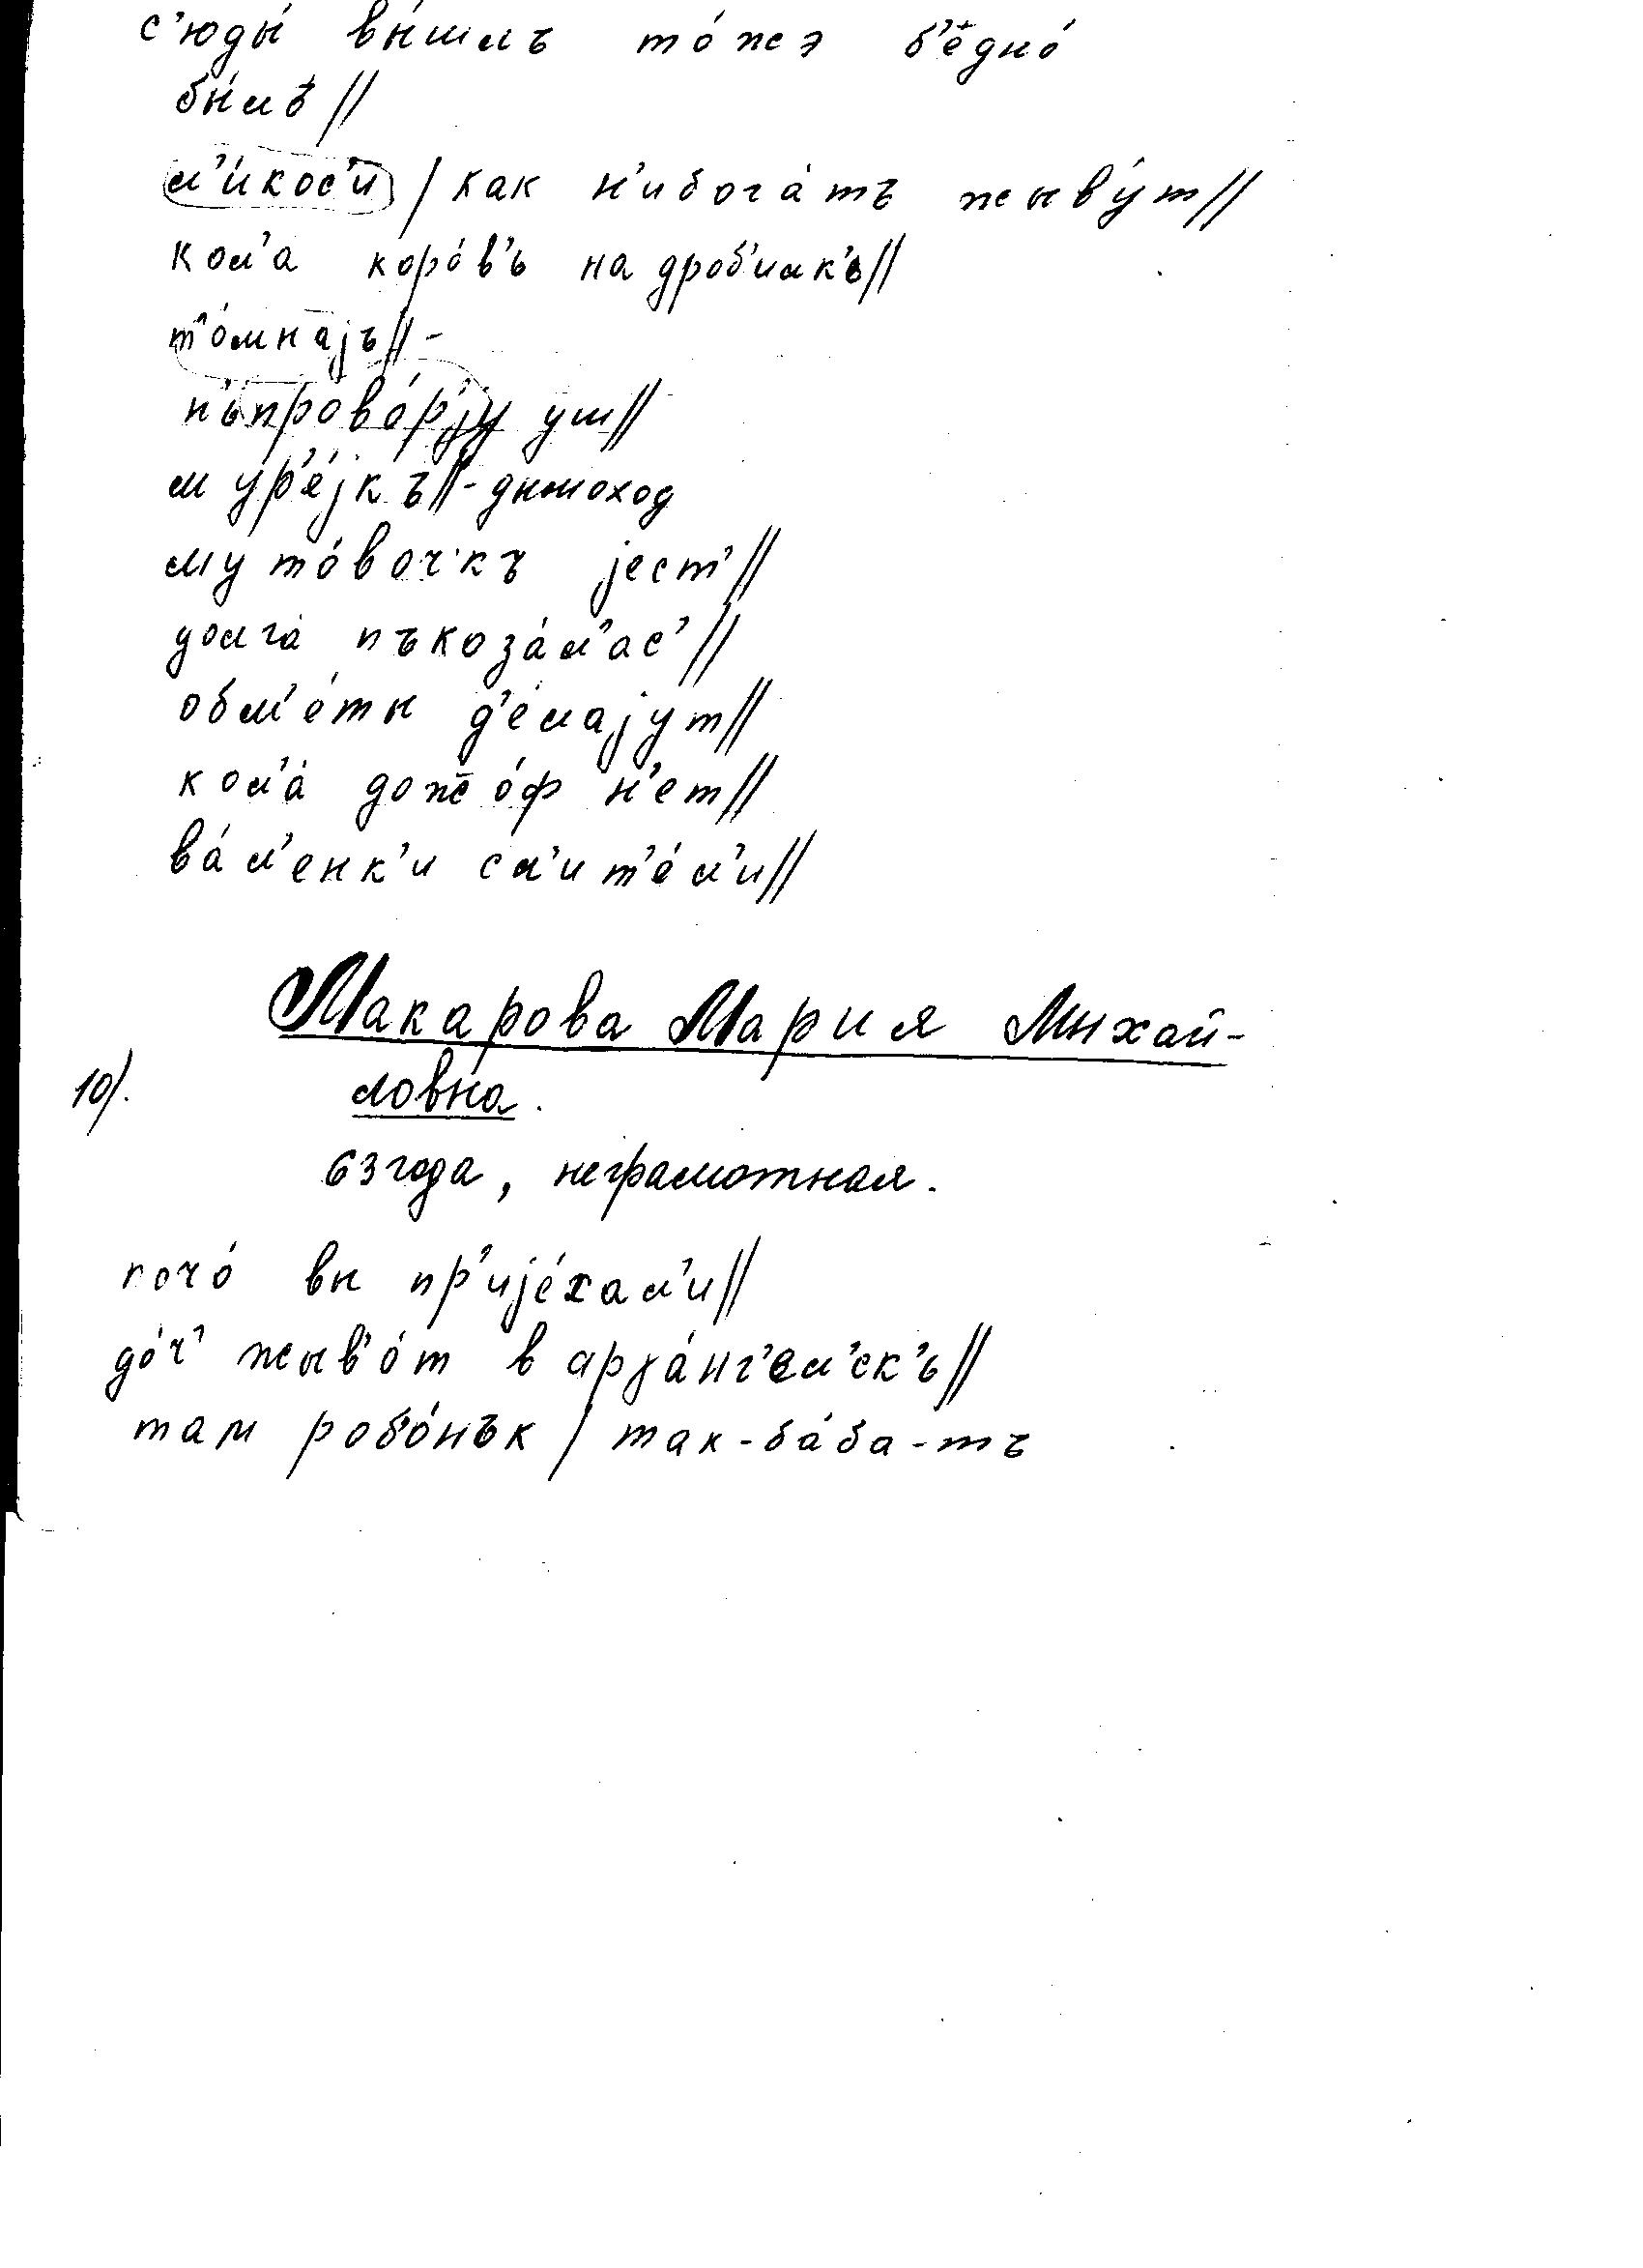 с’юды́ вы́шлъ то́жэ б’е̂дно́
бы́лъ //
л’и́кос’и / как н’ибога́тъ жыву́т //
кол’а коро́в’ь на дроб’илк’ь //
т’о́мнаjъ // -
н’ьпрово́р’jу уш //
мур’е́jкъ // - дымоход
муто́вочкъ jест’ //
долга́ пъкоза́л’ас’ //
обл’е́ты д’е́лаjут //
кол’а́ дож̄о́ф н’ет //
ва́л’енк’и сл’ит’е́л’и //
Макарова Мария Михай-
10). ловна.
63 года, неграмотная.
почо́ вы пр’иjе́хал’и //
до́ч’ жыв’о́т в арха́нг’ел’ск’ь //
там роб’о́нък / так-ба́ба-тъ